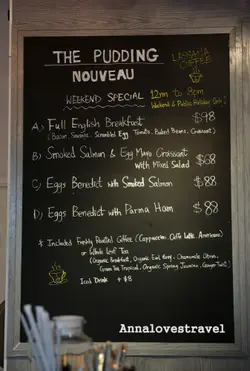 THE PUDDING
NOUVEAU
COFFEE
WEEKEND SPECIAL
12nn to 8pm
Weekend & Public Holiday Only!
A) Full English Breakfast $98
(Bacon, Sausage, Scrambled Egg, Tomato, Baked Beans, Croissant)
B) Smoked Salmon & Egg Mayo Croissant
with Mixed Salad $68
C) Eggs Benedict with Smoked Salmon $88
D) Eggs Benedict with Parma Ham $88
* Included Freshly Roasted Coffee (Cappuccino, Caffe Latte, Americano)
or Whole Leaf Tea
(Organic Breakfast, Organic Earl Grey, Chamomile Citron,
Green Tea Tropical, Organic Spring Jasmine, Ginger Twist)
Iced Drink + $8
Annalovestravel